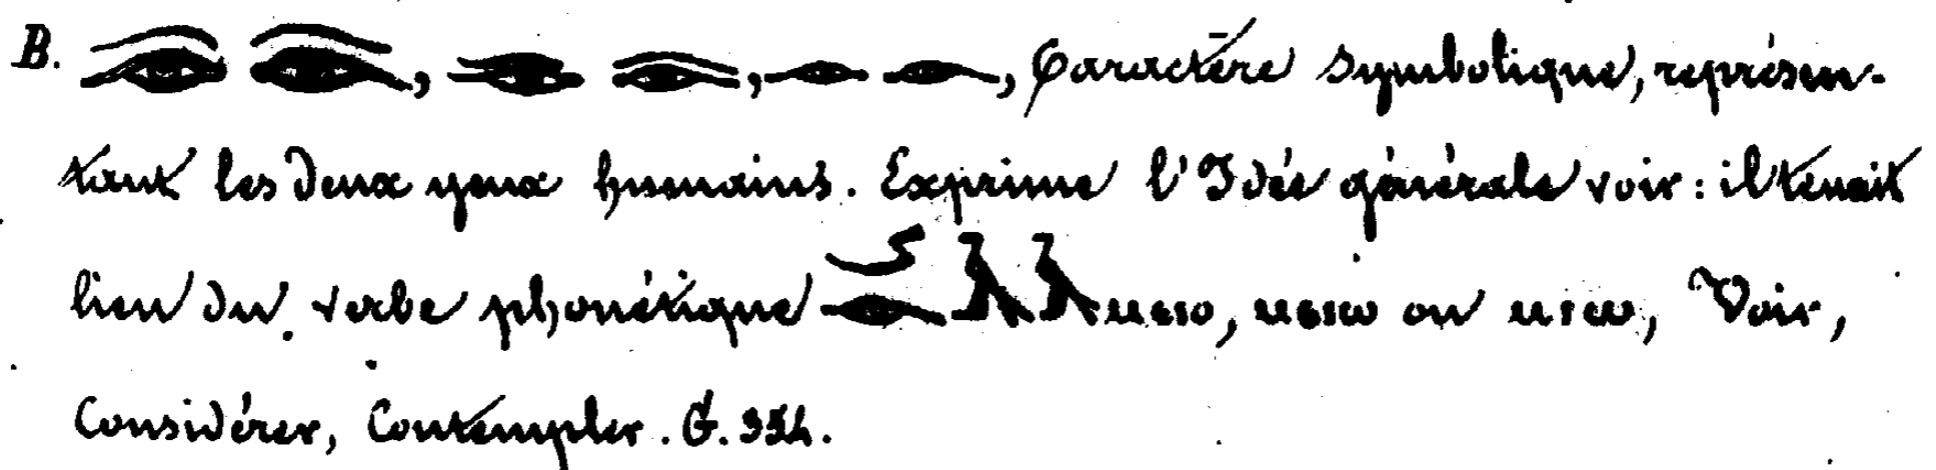 B. , , , Caractère symbolique, représen-
tant les deux yeux humains. Exprime l'Idée générale voir : il tenait
lieu du verbe phonétique , ou , Voir,
Considérer, Contempler. G. 354.